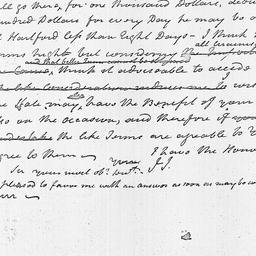 all go there, for one thousand Dollars, dedu
Hundred Dollars for every Day he may be a
of Hartford less than Eight Days – I think
Terms high but considering all Circums
and that better terms cannot be obtained
think it adviseable to accede
I
the like Considerations induce me to wis
the State may also have the Benefit of your
on the occasion, and therefore if you
the like Terms are agreable to
agree to them
I have the Honor
yours
Yr. very most obt. Servt. J.J.
pleased to favor me with an answer as soon as may be con